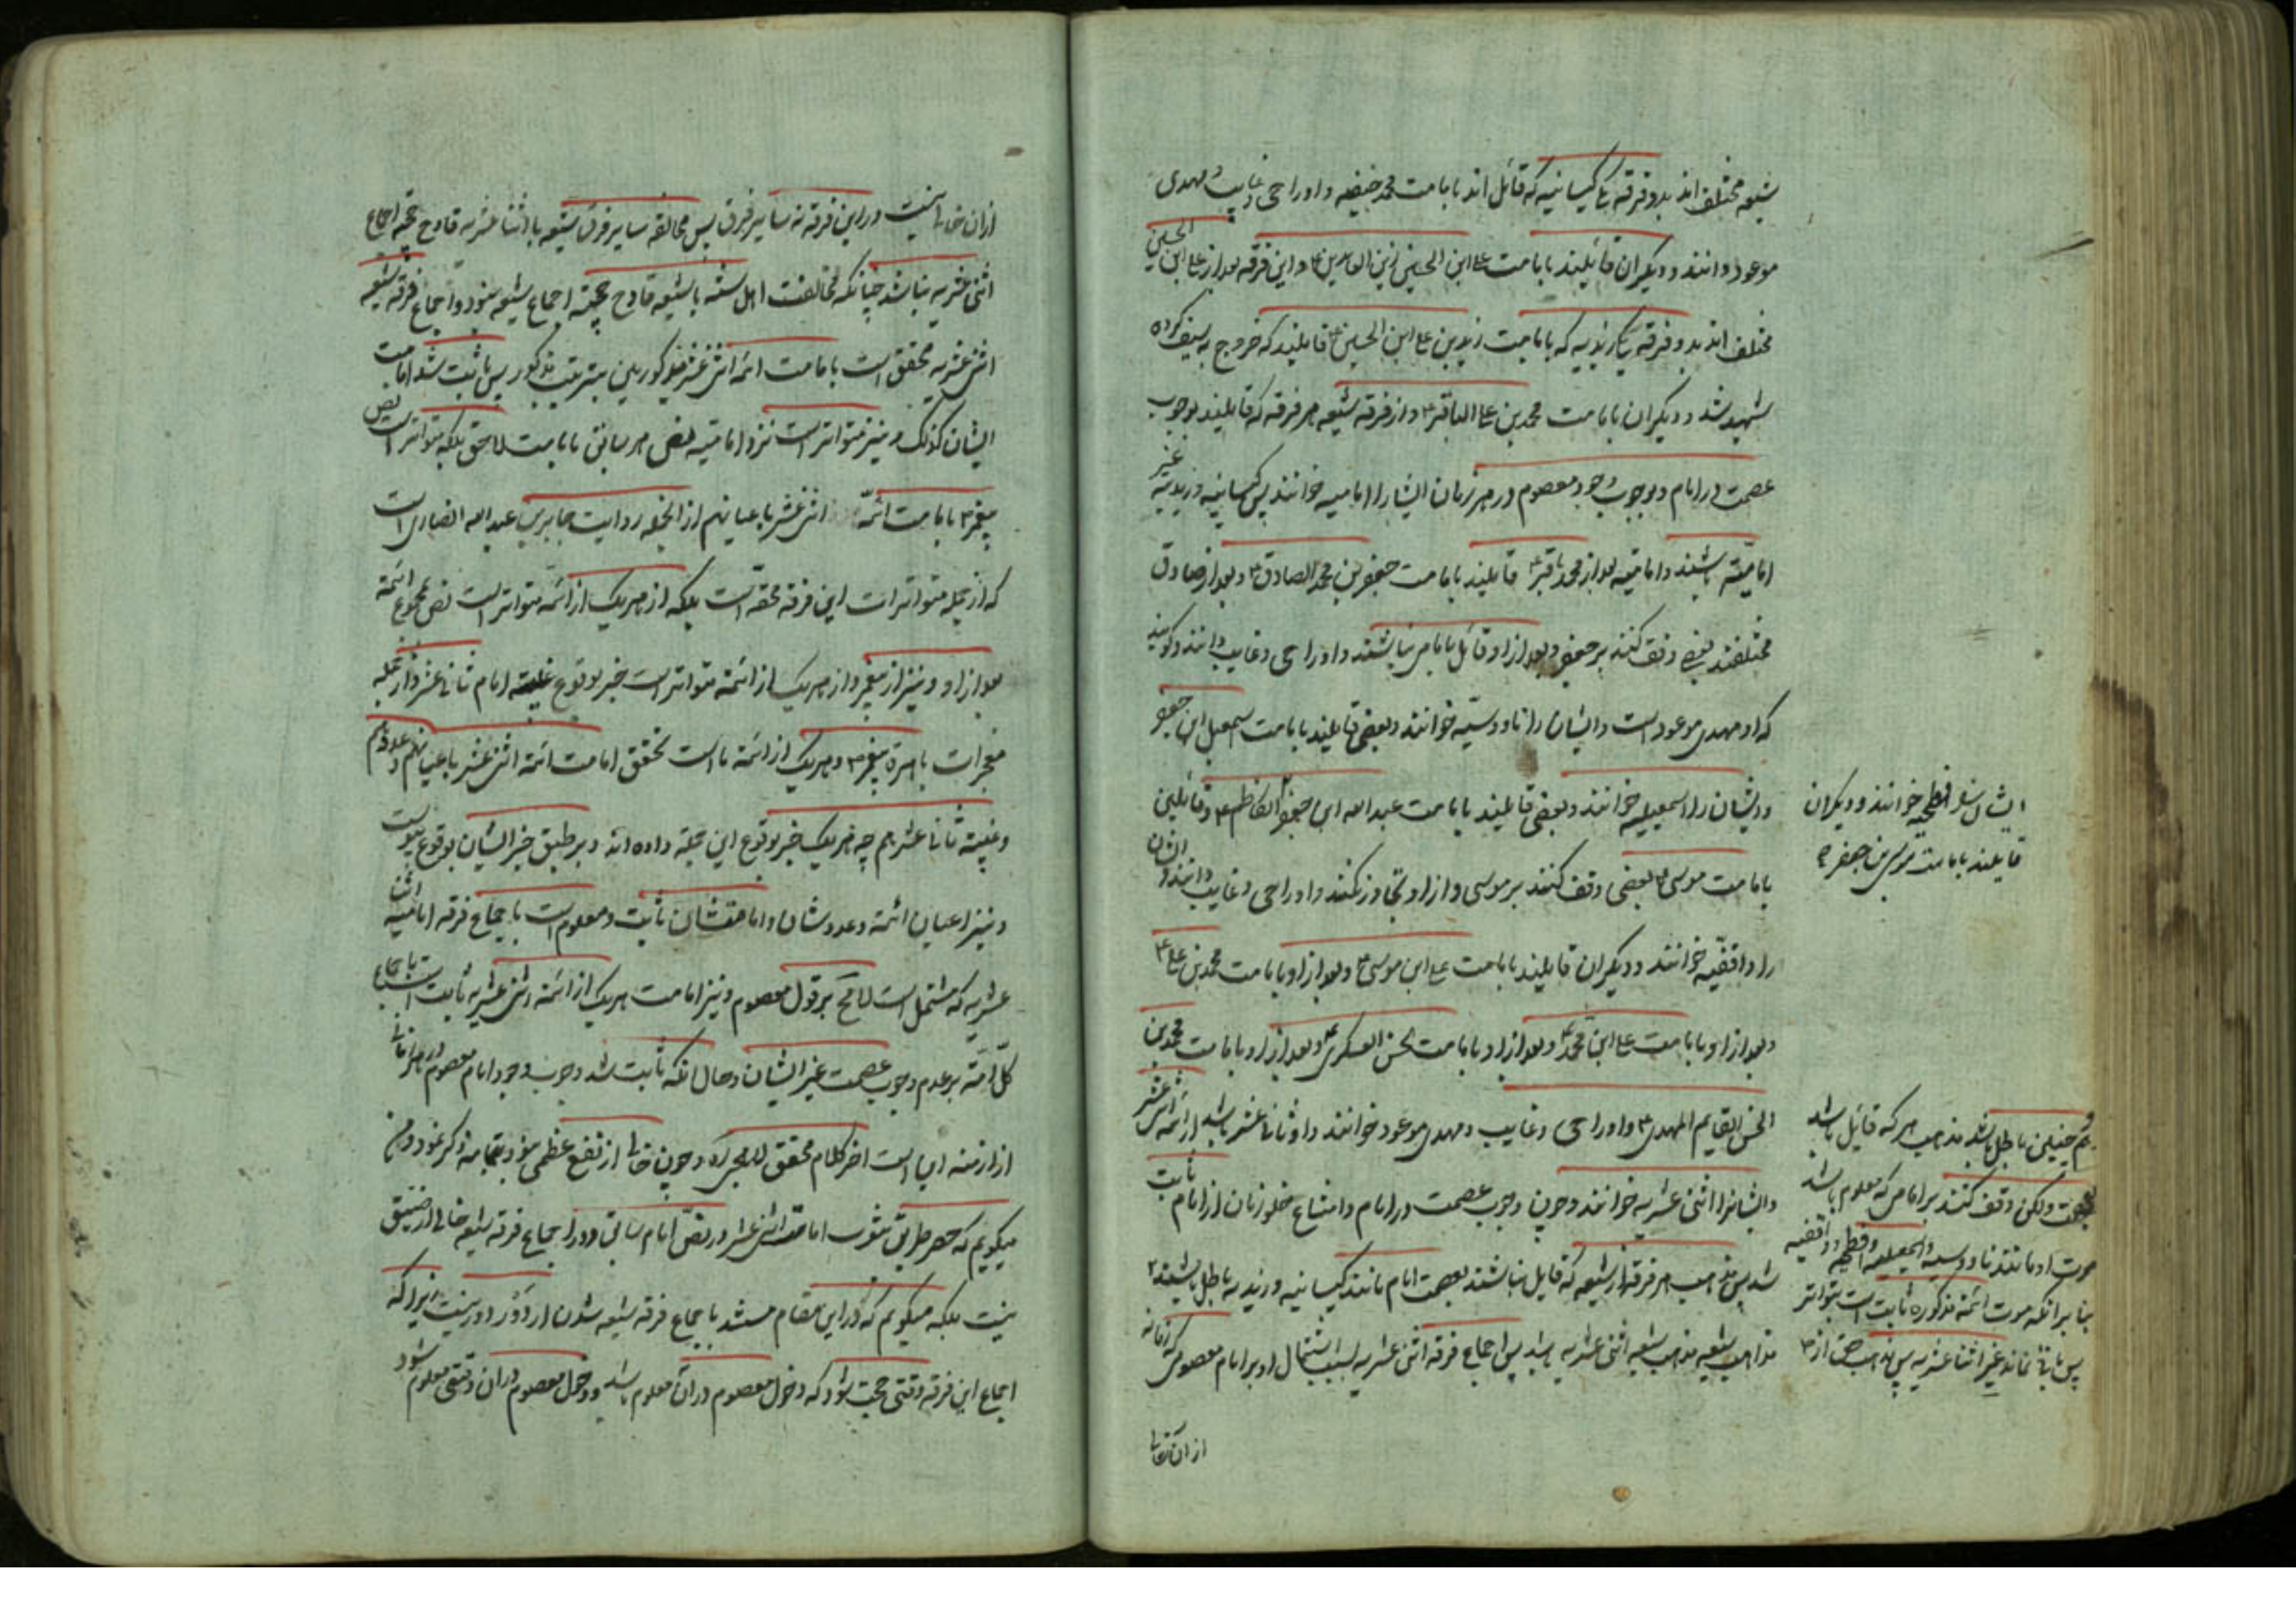 شیعه مختلف اند بدو فرقه یکی کیسانیه که قائل اند بامامت محمد حنفیه و او را حی و غایب و مهدی
موعود دانند و دیگران قائیلند بامامت علی ابن الحسین زین العابدین و این فرقه بعد از علی ابن الحسین
مختلف اند بدو فرقه یکی زیدیه که بامامت زید بن علی ابن الحسین قایلیند که خروج بسیف کرده
شهید شد و دیگران بامامت محمد بن علی الباقر و از فرقه شیعه هر فرقه که قایلیند بوجوب
عصمت در امام و بوجوب وجود معصوم در هر زمان ایشانرا امامیه خوانند پس کیسانیه و زیدیه غیر
امامیّه باشند و امامیّه بعد از محمد باقر قایلیند بامامت جعفر بن محمد الصادق و بعد از صادق
مختلفند بعضی وقف کنند بر جعفر و بعد از او قائل بامامی نباشند و او را حی و غایب دانند و گویند
که او مهدی موعود است و ایشان را ناووسیّه خوانند و بعضی قایلیند بامامت اسمعیل ابن جعفر
و ایشان را اسمعیلیه خوانند و بعضی قایلیند بامامت عبدالله ابن جعفر الکاظم و قائلین
ایشان را فطحیه خوانند و دیگران
قایلیند بامامت موسی بن جعفر
بامامت موسی بعضی وقف کنند بر موسی و از او تجاوز نکنند و او را حی و غایب دانند و ایشان
را واقفیّه خوانند و دیگران قایلیند بامامت علی ابن موسی و بعد از او بامامت محمد بن علی
و بعد از او بامامت علی ابن محمد و بعد از او بامامت حسن العسکری و بعد از او بامامت محمد بن
الحسن القایم المهدی و او را حی و غایب و مهدی موعود خوانند و او ثانی عشر باشد از ائمه اثنی عشر
و ایشانرا اثنی عشریه خوانند و چون وجوب عصمت در امام و امتناع خلو زمان از امام ثابت
شد پس مذهب هر فرقه از شیعه که قایل نباشند بعصمت امام مانند کیسانیه و زیدیه باطل باشند
و هم چنین باطل باشد مذهب هر که قائل باشد
بعصمت ولکن وقف کنند بر امامی که معلوم باشد
موت او مانند ناووسیه و اسمعیلیه و فطحیه و واقفیه
بنا بر آنکه موت ائمه مذکوره ثابت است بتواتر
پس باقی نماند غیر اثنا عشریه پس مذهب حق از
مذاهب شیعه مذهب شیعه اثنی عشریه باشد پس اجماع فرقه اثنی عشریه بسبب اشتمال او بر امام معصومی که زمانه
از آن خالی
از ان خالی نیست در این فرقه نه سایر فرق پس مخالفه سایر فرق شیعه با اثنا عشریه قادح حجیة اجماع
اثنی عشریه نباشد چنانکه مخالفت اهل سنّه با شیعه قادح حجیّة اجماع شیعه نبود و اجماع فرقه شیعه
اثنی عشریه محقق است بامامت ائمه اثنی عشر مذکورین بترتیب مذکور پس ثابت شد امامت
ایشان کذلک و نیز متواتر است نزد امامیّه نص هر سابق بامامت لاحق بلکه متواتر است نص
پیغمبر بامامت ائمّه اثنی عشر باعیانهم از انجمله روایت جابر بن عبدالله انصاری است
که از جمله متواترات این فرقه محقه است بلکه از هر یک از ائمّه متواتر است نص بمجموع ائمّه
بعد از او و نیز از پیغمبر و از هر یک از ائمّه متواتر است خبر بوقوع غیبة امام ثانی عشر و از جمله
معجزات باهره پیغمبر و هر یک از ائمّه ما است تحقق امامت ائمّه اثنی عشر باعیانهم و عددهم
و غیبة ثانی عشرهم چه هر یک خبر بوقوع این جمله داده اند و بر طبق خبر ایشان بوقوع پیوست
و نیز اعیان ائمّه و عددشان و امامتشان ثابت و معلوم است باجماع فرقه امامیّه اثنا
عشریه که مشتمل است لا محّ بر قول معصوم و نیز امامت هر یک از ائمّه اثنی عشریه ثابت است باجماع
کلّ امّة بر عدم وجوب عصمت غیر ایشان و حال آنکه ثابت شد وجوب وجود امام معصوم در هر زمانی
از ازمنه اینست اخر کلام محقق لاهیجی ره و چون خالی از نفع عظمی نبود بتمامه ذکر نمودم و من
میگویم که حصر طریق ثبوت امامت اثنی عشر در نصّ امام سابق و در اجماع فرقه شیعه خالی از ضیق
نیست بلکه میگویم که در این مقام مستند باجماع فرقه شیعه شدن از دَوْر دور نیست زیرا که
اجماع این فرقه وقتی حجت شود که دخول معصوم در آن معلوم باشد و دخول معصوم در ان وقتی معلوم شود